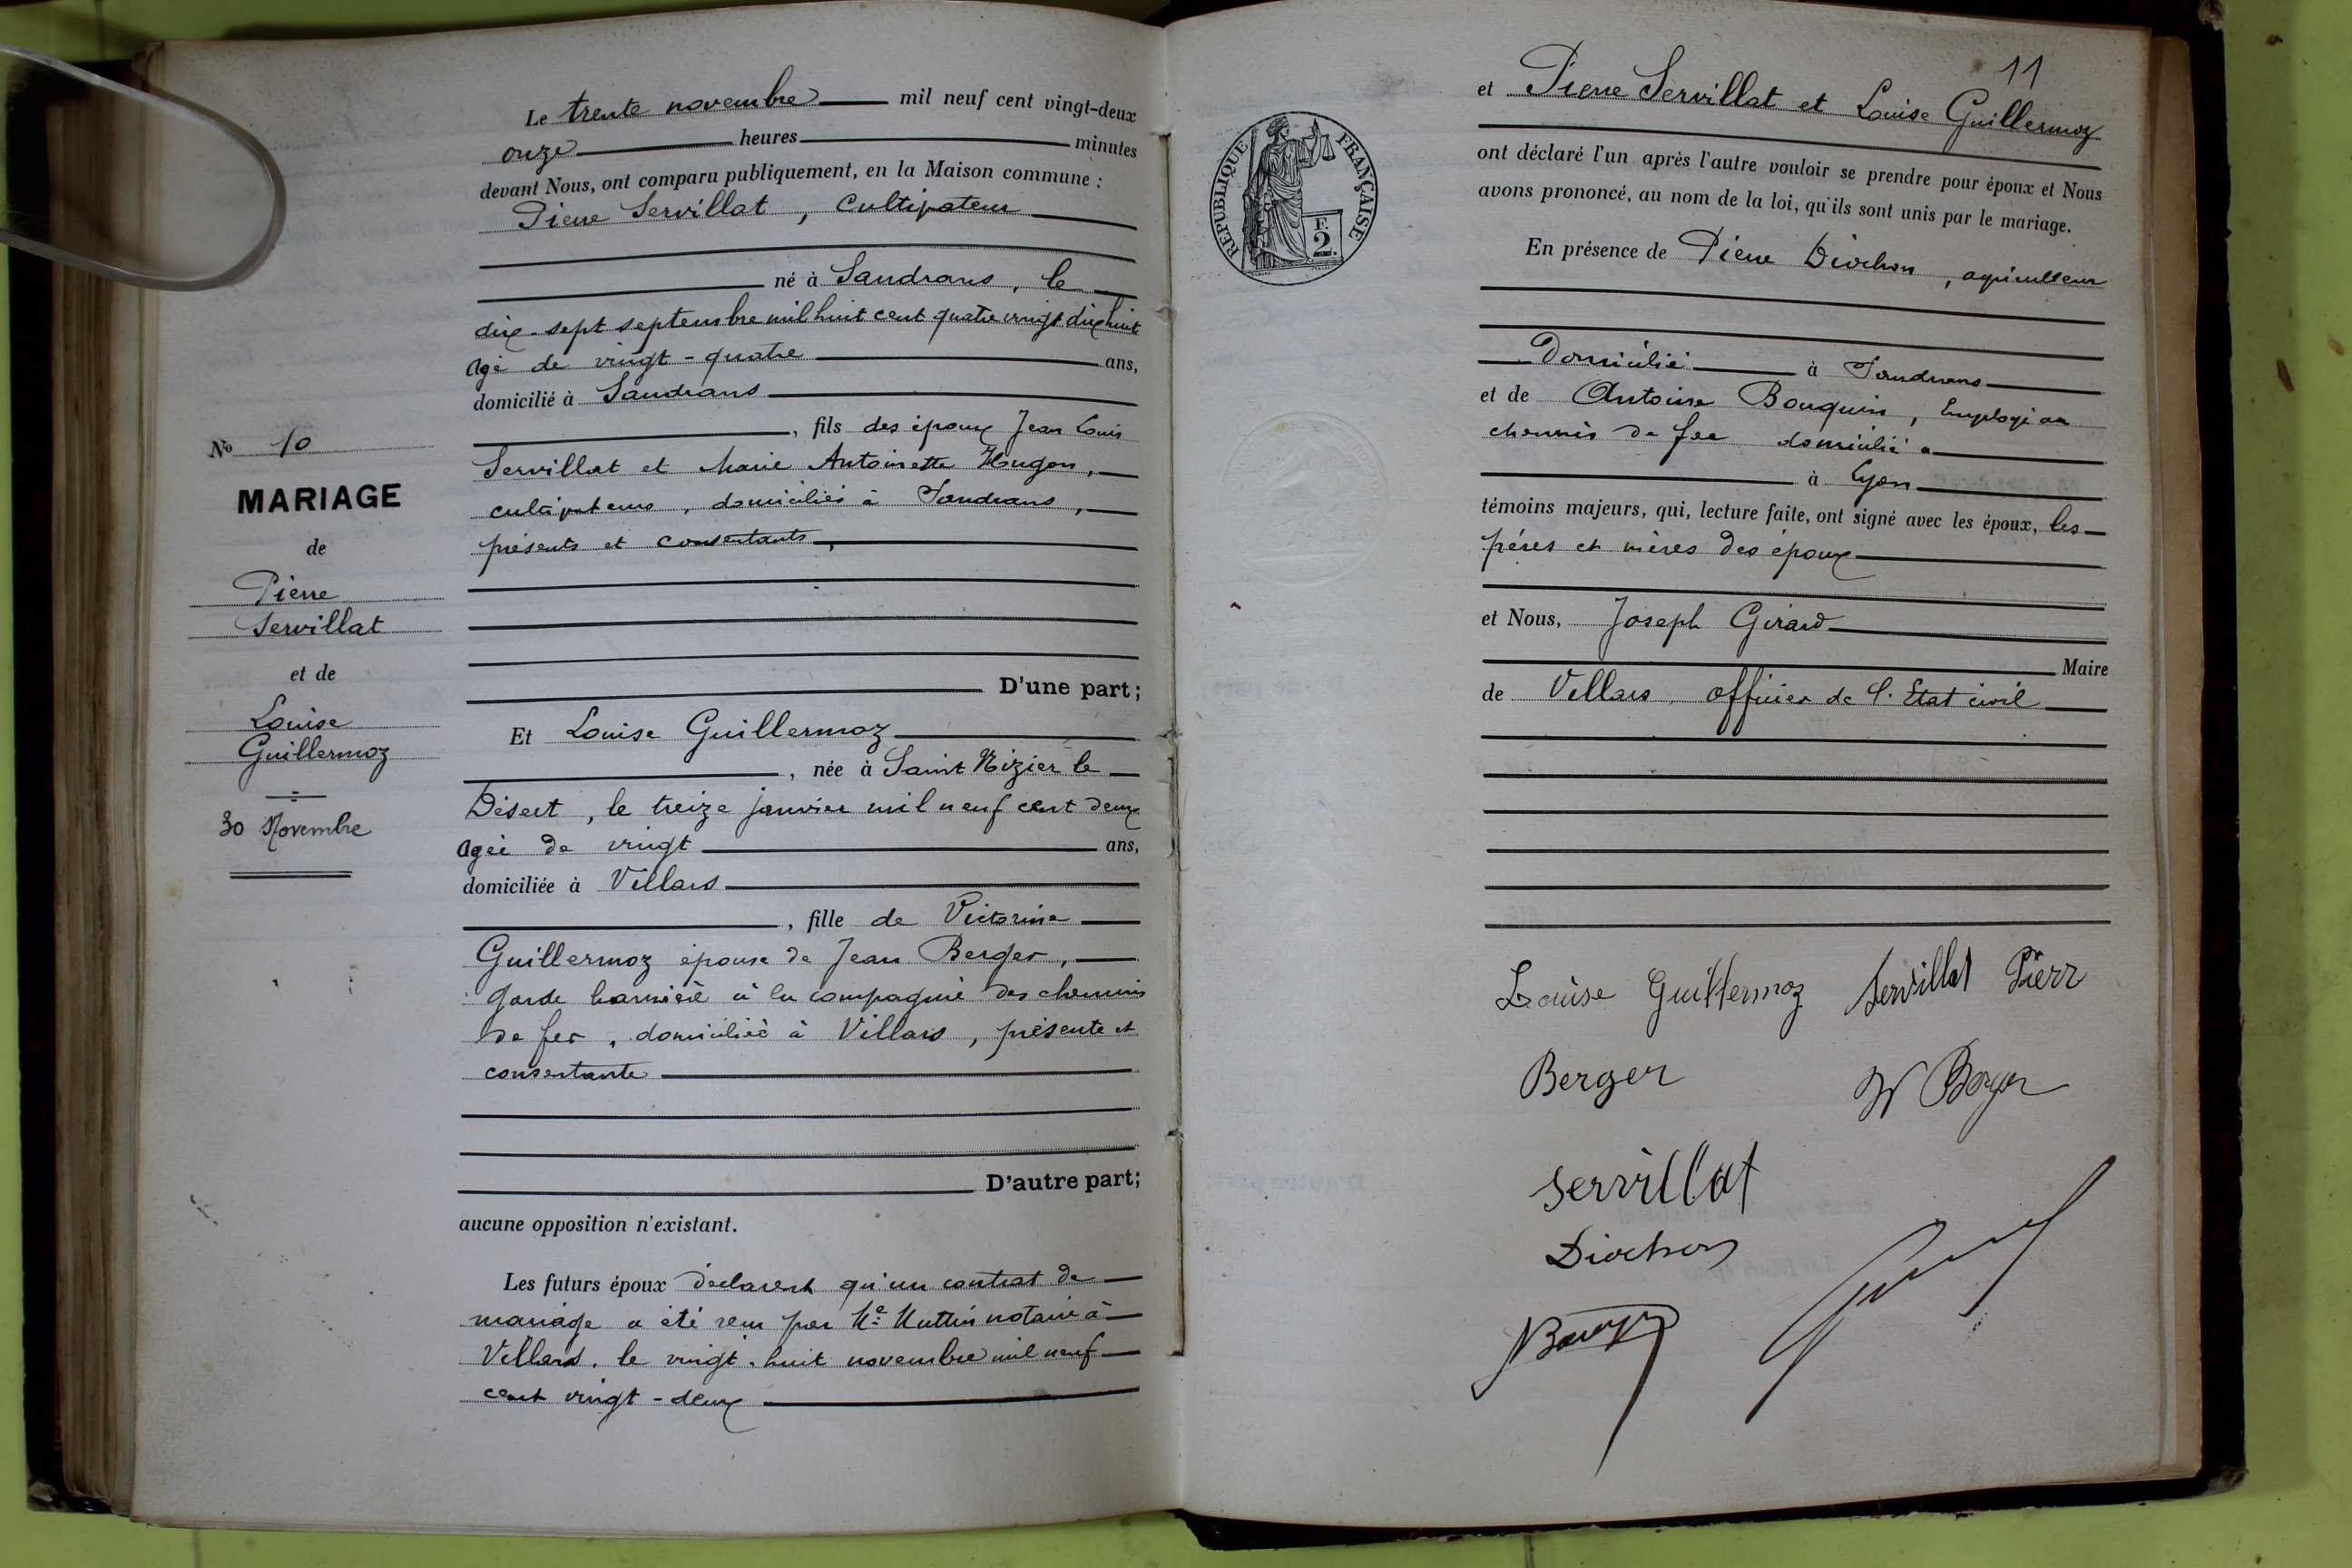 Le trente novembre mil neuf cent vingt-deux
onze heures minutes
devant Nous, ont comparu publiquement, en la Maison commune :
Pierre Servillat, Cultivateur
né à Sandrans, le
dix-sept septembre mil huit cent quatre vingt dix huit
agé de vingt-quatre ans,
domicilié à Sandrans
, fils des époux Jean Louis
Servillat et Marie Antoinette Hugon,
cultivateurs, domiciliés à Sandrans,
présents et consentants,
D'une part;
Et Louise Guillermoz
, née à Saint Nizier le
Désert, le treize janvier mil neuf cent deux
agée de vingt ans,
domiciliée à Villars
, fille de Victorine
Guillermoz épouse de Jean Berger,
garde barrière à la compagnie des chemins
de fer, domiciliée à Villars, présente et
consentante
D'autre part;
aucune opposition n'existant.
Les futurs époux déclarent qu'un contrat de
mariage a été reçu par Me notaire à
Villars, le vingt-huit novembre mil neuf
cent vingt-deux
No 10
MARIAGE
de
Pierre
Servillat
et de
Louise
Guillermoz
30 Novembre
11
RÉPUBLIQUE FRANÇAISE
F.
2.
et Pierre Servillat et Louise Guillermoz
ont déclaré l'un après l'autre vouloir se prendre pour époux et Nous
avons prononcé, au nom de la loi, qu'ils sont unis par le mariage.
En présence de Pierre Diochon, agriculteur
Domicilié à Sandrans
et de Antoine Bouquin, Employé au
chemin de fer domicilié a
à Lyon
témoins majeurs, qui, lecture faite, ont signé avec les époux, les
pères et mères des époux
et Nous, Joseph Girard
Maire
de Villars, officier de l'Etat civil
Louise Guillermoz Servillat Pierr
Berger
Berger
Servillat
Diochon